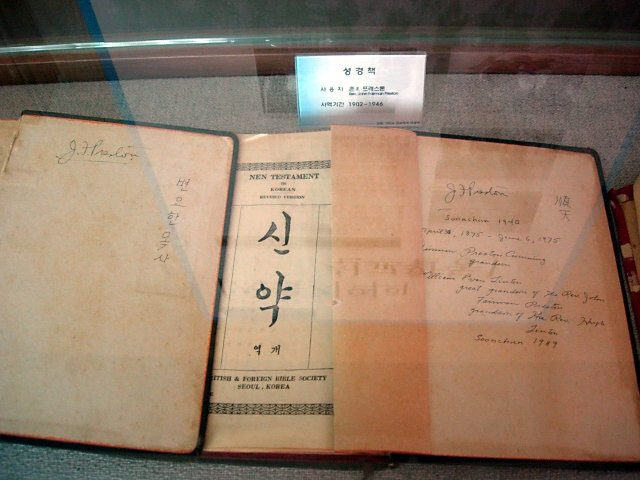 성경책
사용자 존 F. 프레스톤
Rev. John Fairman Preston
사역기간 1902~1946
J. F. Preston
변요한 목사
NEW TESTAMENT
IN
KOREAN
REVISED VERSION
신약
역개
BRITISH & FOREIGN BIBLE SOCIETY
SEOUL, KOREA
J. F. Preston
順天
Soonchun 1940
April, 1875 - June 6, 1975
Fairman Preston Cumming
grandson
William Evan Linton
great grandson of the Rev. John
Fairman Preston
grandson of the Rev. Hugh
Linton
Soonchun 1989